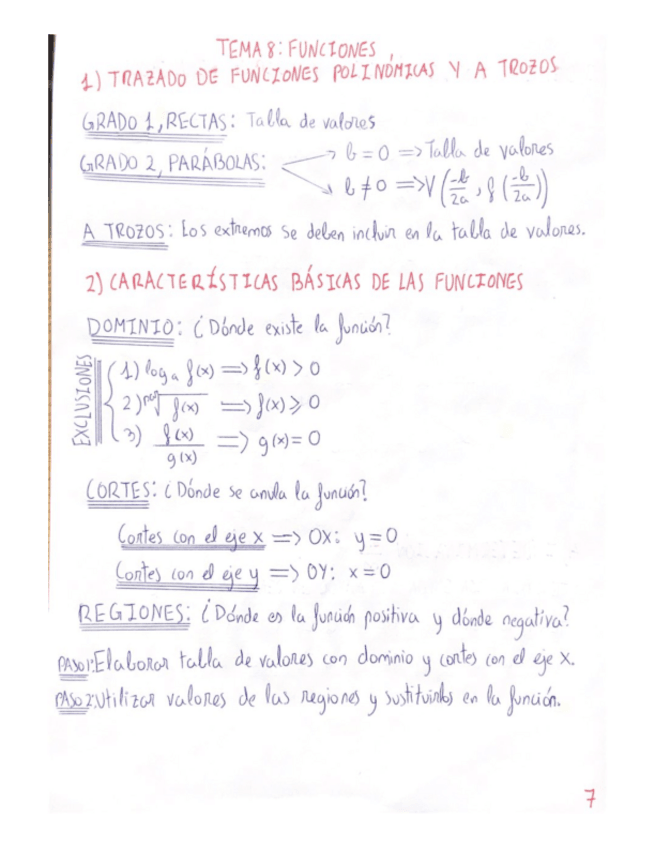 TEMA 8: FUNCIONES
1) TRAZADO DE FUNCIONES POLINÓMICAS Y A TROZOS
GRADO 1, RECTAS: Talla de valores
GRADO 2, PARÁBOLAS: → b = 0 => Talla de valores
→ b ≠ 0 => V (-b/2a, f(-b/2a))
A TROZOS: Los extremos se deben incluir en la talla de valores.
2) CARACTERÍSTICAS BÁSICAS DE LAS FUNCIONES
DOMINIO: ¿Dónde existe la función?
EXCLUSIONES
1) logₐ f(x) => f(x) > 0
2) par√f(x) => f(x) ≥ 0
3) f(x)/g(x) => g(x) = 0
CORTES: ¿Dónde se anula la función?
Cortes con el eje x => OX: y = 0
Cortes con el eje y => OY: x = 0
REGIONES: ¿Dónde es la función positiva y dónde negativa?
PASO 1: Elaborar talla de valores con dominio y cortes con el eje x.
PASO 2: Utilizar valores de las regiones y sustituirlos en la función.
7